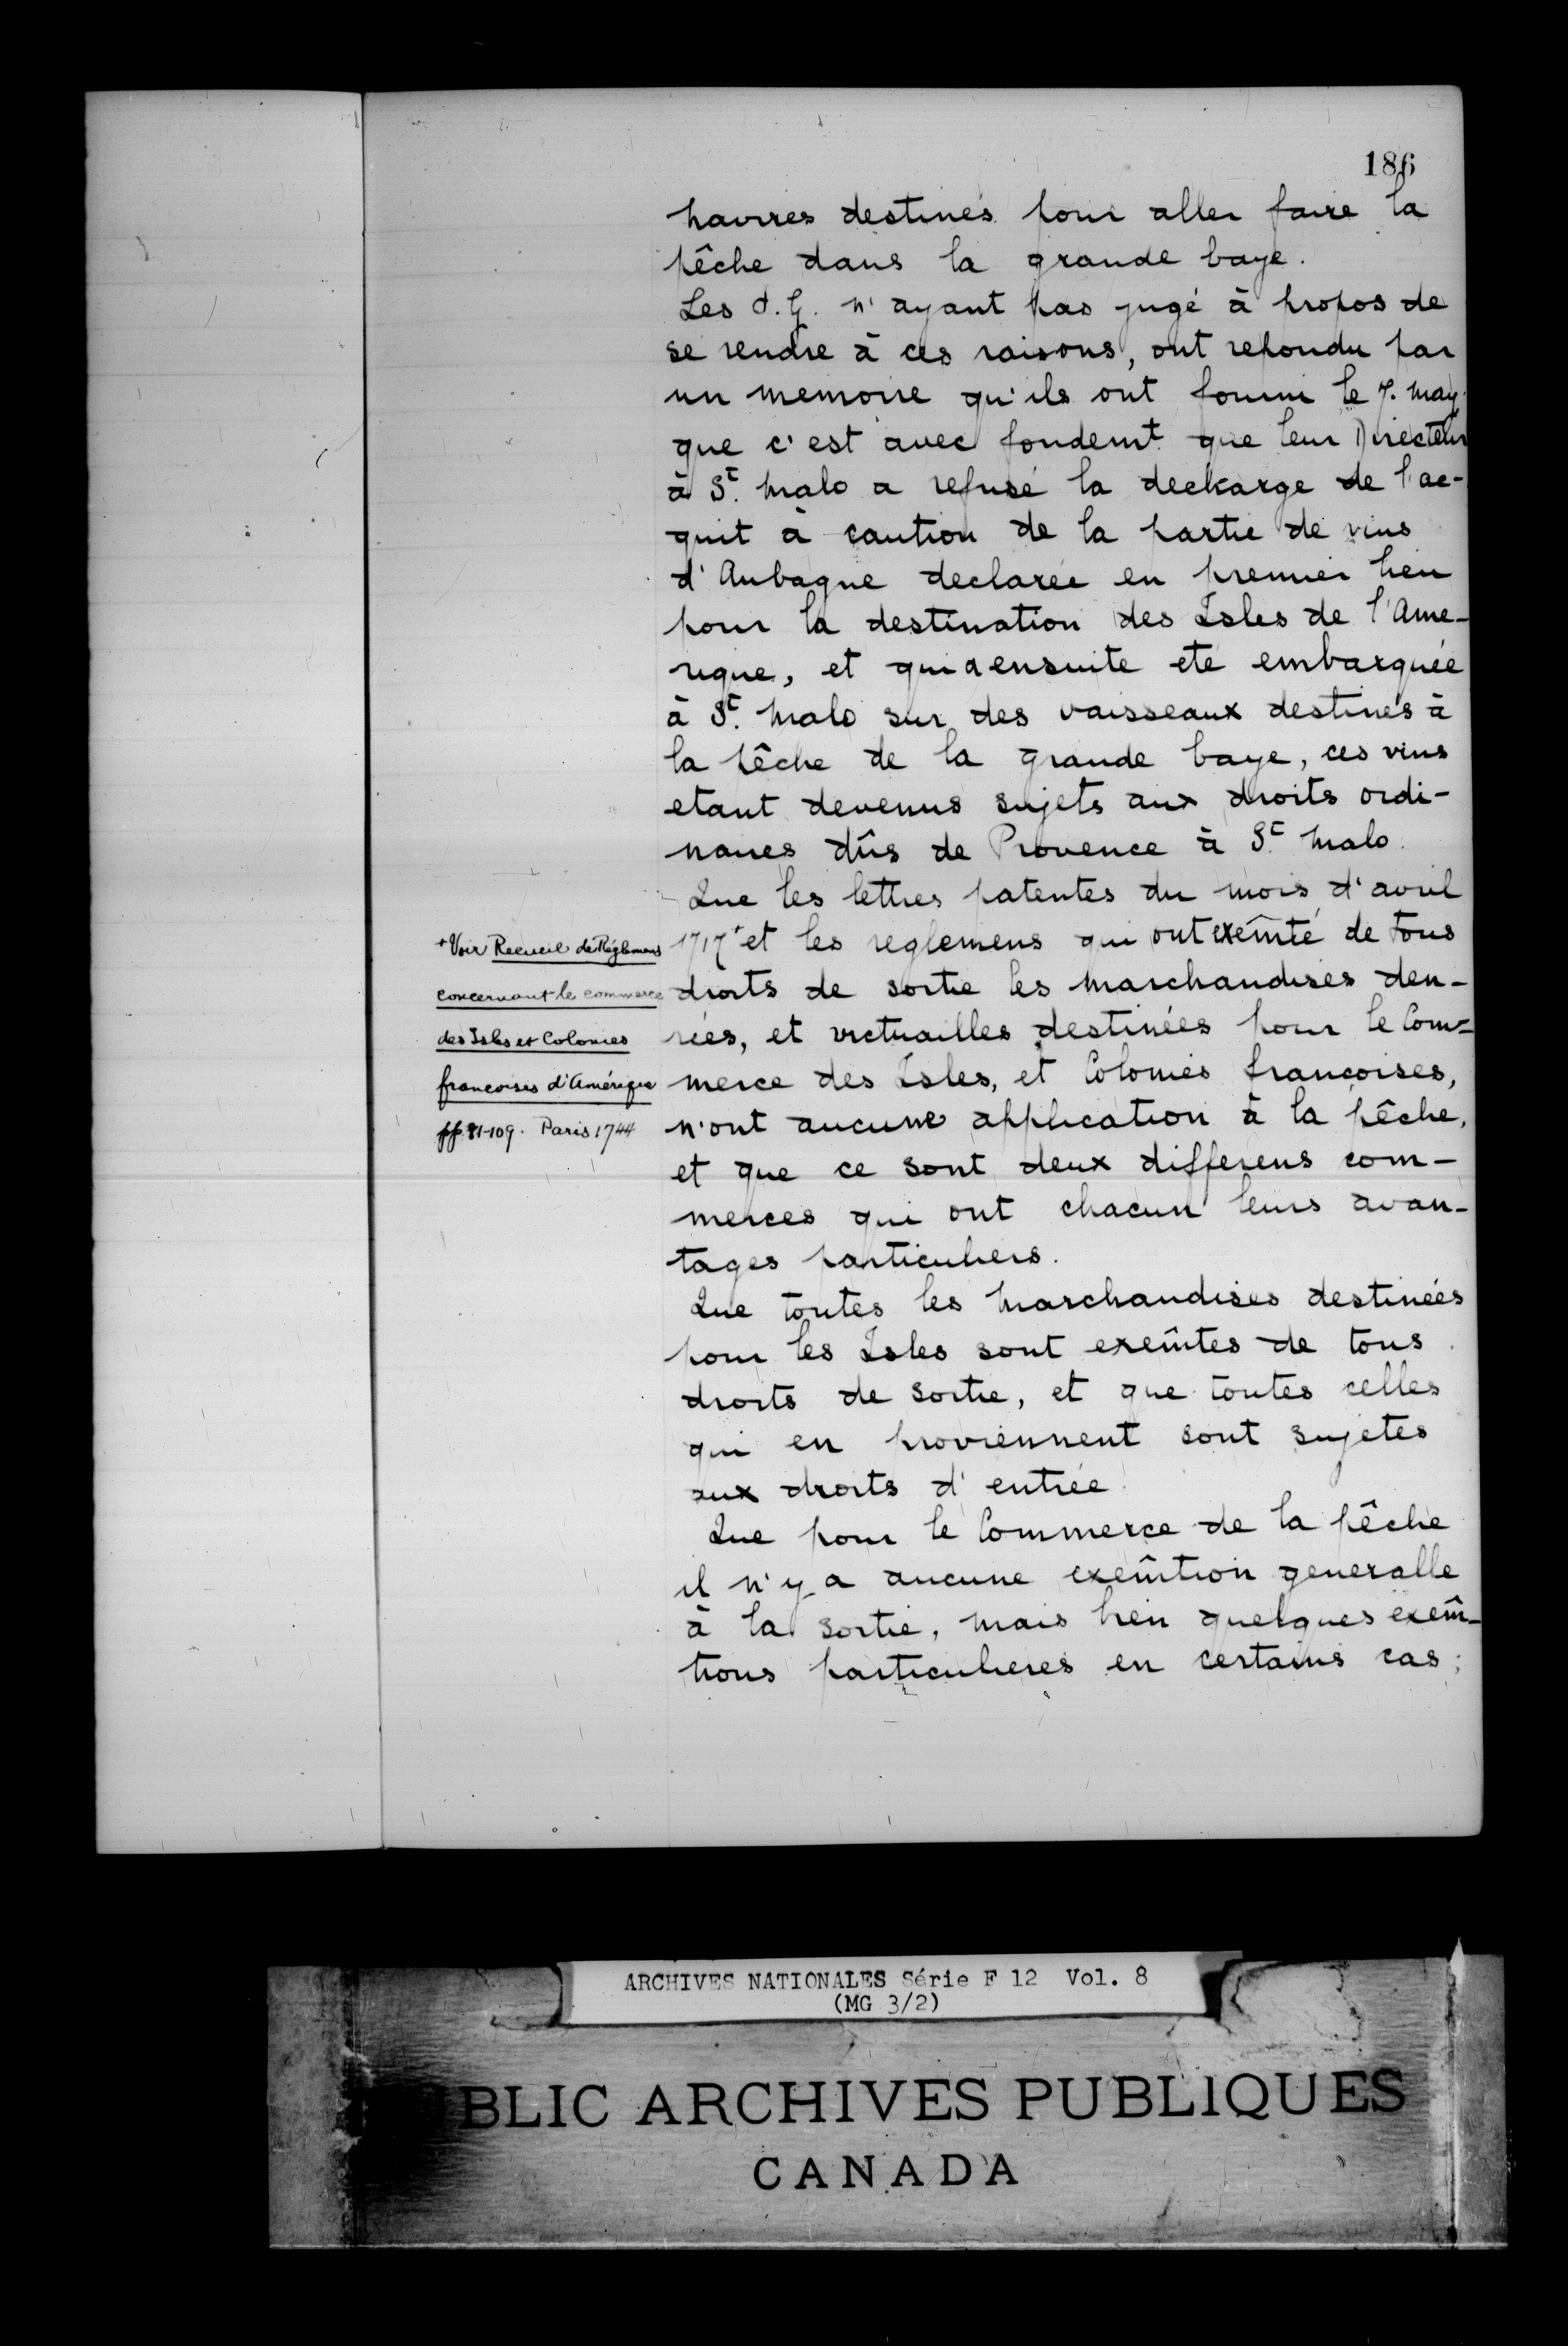 186
navires destinés pour aller faire la
pêche dans la grande baye.
Les d. G. n'ayant pas jugé à propos de
se rendre à ces raisons, ont repondu par
un memoire qu'ils ont fourni le 7. may
que c'est avec fondemt que leur Directeur
à St. Malo a refusé la decharge de l'ac-
quit à caution de la partie de vins
d'Aubagne declarée en premier lieu
pour la destination des Isles de l'Ame-
rique, et qui a ensuite eté embarquée
à St. Malo sur des vaisseaux destinés à
la pêche de la grande baye, ces vins
etant devenus sujets aux droits ordi-
naires dûs de Provence à St. Malo.
Que les lettres patentes du mois d'avril
1717+ et les reglemens qui ont exeîmté de tous
droits de sortie les marchandises den-
rées, et victuailles destinées pour le Com-
merce des Isles, et Colonies françoises,
n'ont aucune application à la pêche,
et que ce sont deux differens com-
merces qui ont chacun leurs avan-
tages particuliers.
Que toutes les Marchandises destinées
pour les Isles sont exeîmtes de tous
droits de sortie, et que toutes celles
qui en proviennent sont sujetes
aux droits d'entrée.
Que pour le Commerce de la pêche
il n'y a aucune exeîmtion generalle
à la sortie, mais bien quelques exeîm-
tions particulieres en certains cas;
+Voir Recueil de Réglemens
concernant le commerce
des Isles et Colonies
françoises d'Amérique
pp. 81-109. Paris 1744
ARCHIVES NATIONALES Série F 12 Vol. 8
(MG 3/2)
BLIC ARCHIVES PUBLIQUES
CANADA